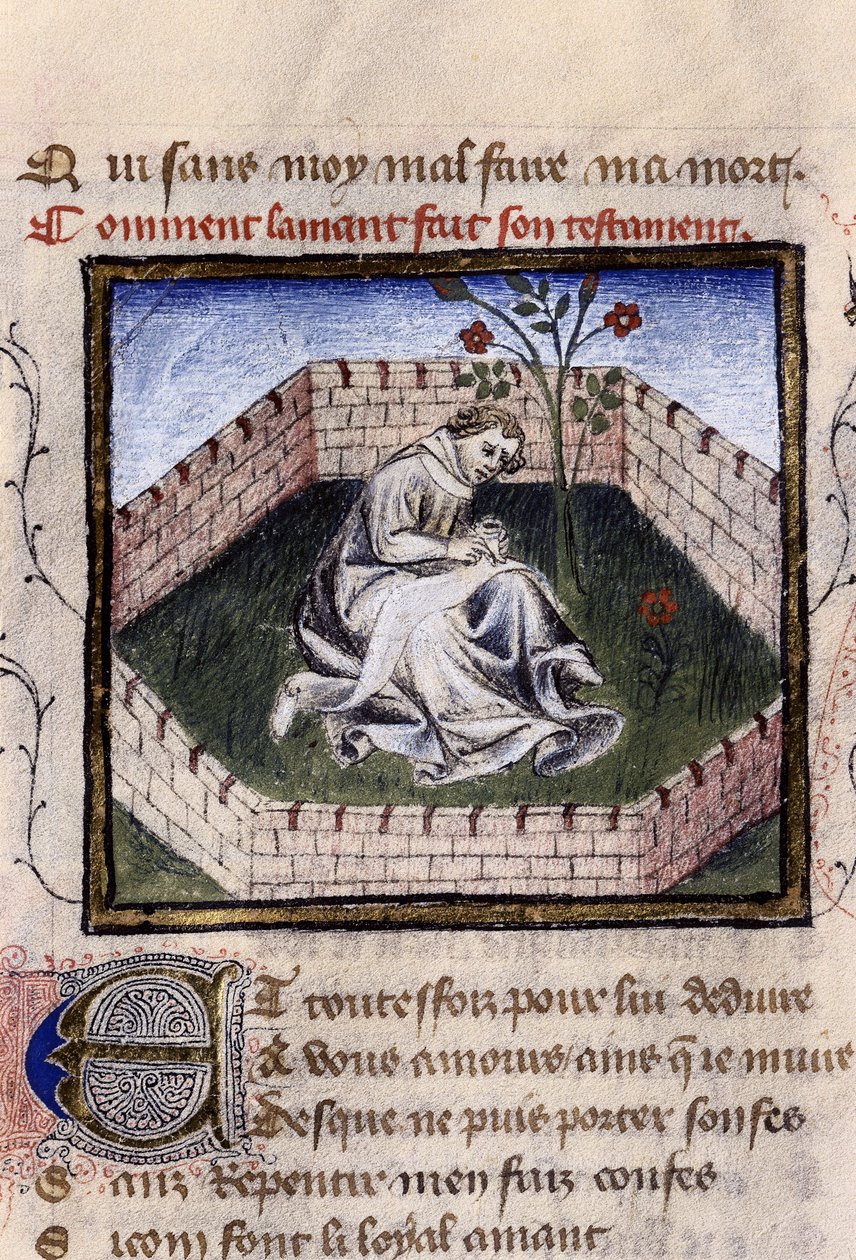 Qui sans moy mal faire ma mort.
Comment lamant fait son testament.
ET toutesfoiz pour lui deduire
A vous amours ains q̃ ie muire
Desque ne puis porter son fes
Sanz Repentir men faiz confes
Sicom font li loyal amant